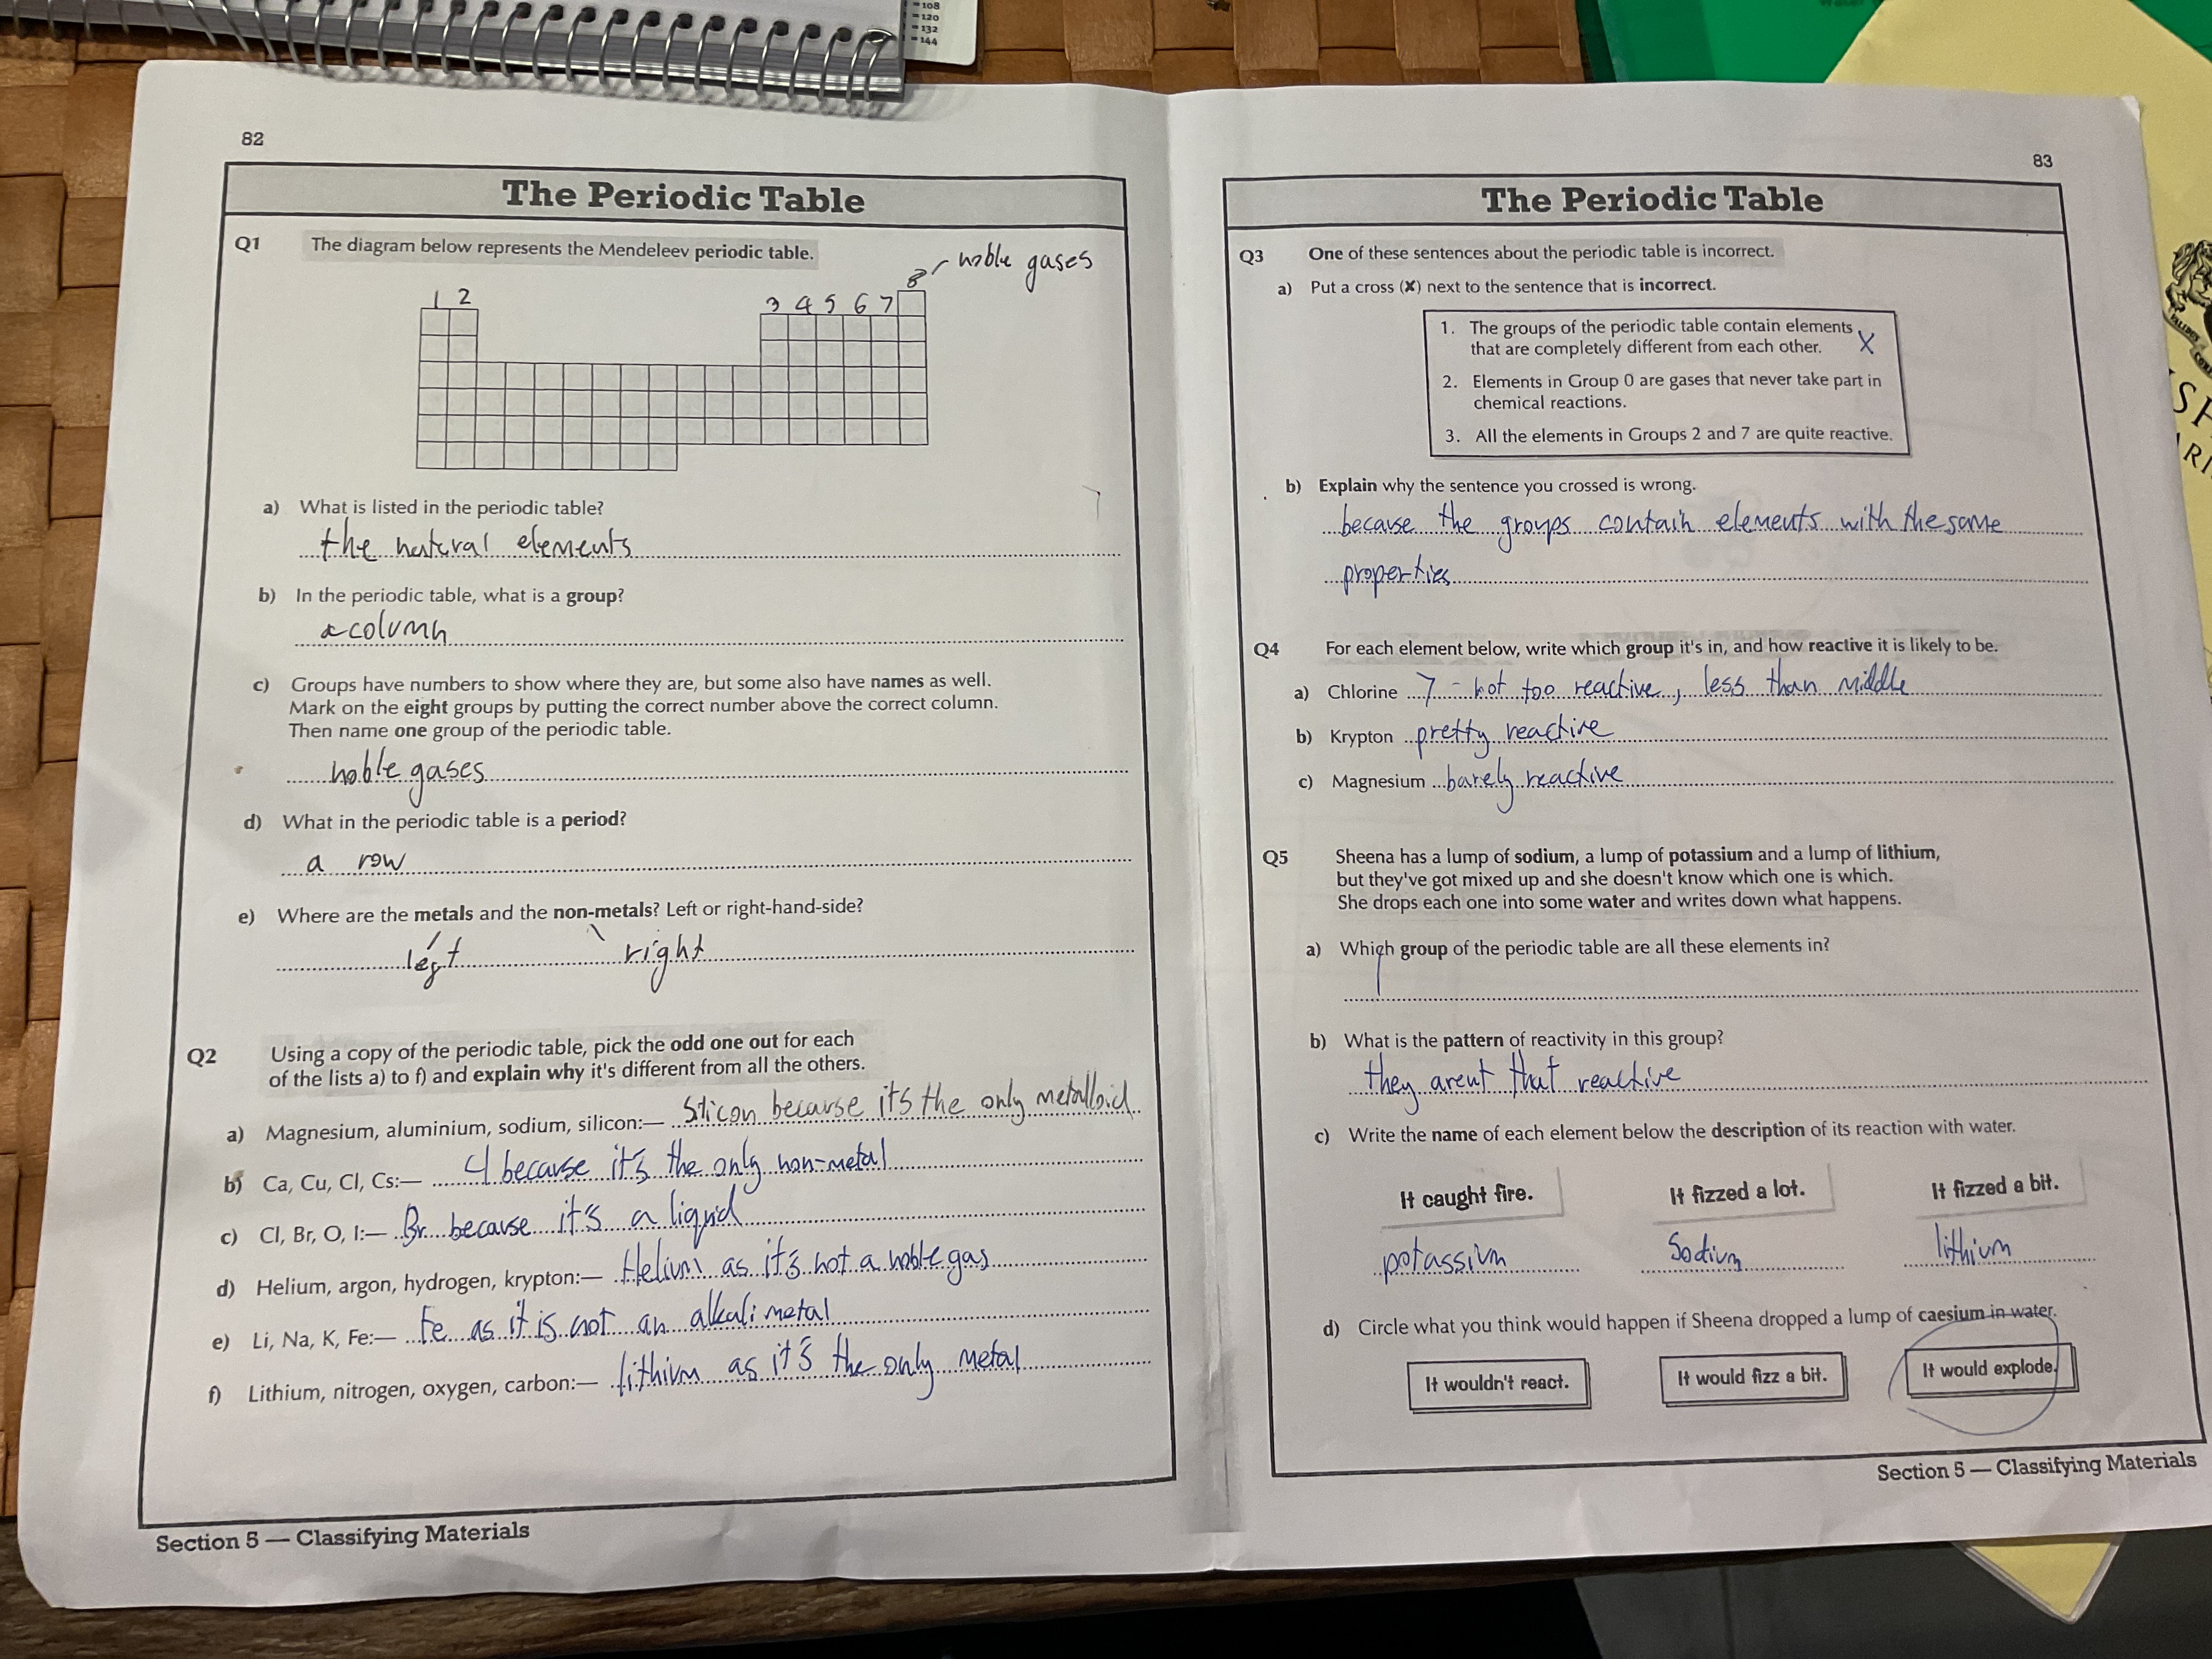 =108
=120
=132
=144
82
The Periodic Table
Q1 The diagram below represents the Mendeleev periodic table.
8 noble gases
1 2 3 4 5 6 7
a) What is listed in the periodic table?
the natural elements
b) In the periodic table, what is a group?
a column
c) Groups have numbers to show where they are, but some also have names as well.
Mark on the eight groups by putting the correct number above the correct column.
Then name one group of the periodic table.
noble gases
d) What in the periodic table is a period?
a row
e) Where are the metals and the non-metals? Left or right-hand-side?
left right
Q2 Using a copy of the periodic table, pick the odd one out for each
of the lists a) to f) and explain why it's different from all the others.
a) Magnesium, aluminium, sodium, silicon:— Silicon because it's the only metalloid
b) Ca, Cu, Cl, Cs:— Cl because it's the only non-metal
c) Cl, Br, O, I:— Br because it's a liquid
d) Helium, argon, hydrogen, krypton:— Helium as it's not a noble gas
e) Li, Na, K, Fe:— Fe as it is not an alkali metal
f) Lithium, nitrogen, oxygen, carbon:— lithium as it's the only metal
Section 5 — Classifying Materials
83
The Periodic Table
Q3 One of these sentences about the periodic table is incorrect.
a) Put a cross (✗) next to the sentence that is incorrect.
1. The groups of the periodic table contain elements
that are completely different from each other. X
2. Elements in Group 0 are gases that never take part in
chemical reactions.
3. All the elements in Groups 2 and 7 are quite reactive.
b) Explain why the sentence you crossed is wrong.
because the groups contain elements with the same
properties
Q4 For each element below, write which group it's in, and how reactive it is likely to be.
a) Chlorine 7 - not too reactive, less than middle
b) Krypton pretty reactive
c) Magnesium barely reactive
Q5 Sheena has a lump of sodium, a lump of potassium and a lump of lithium,
but they've got mixed up and she doesn't know which one is which.
She drops each one into some water and writes down what happens.
a) Which group of the periodic table are all these elements in?
1
b) What is the pattern of reactivity in this group?
they arent that reactive
c) Write the name of each element below the description of its reaction with water.
It caught fire. It fizzed a lot. It fizzed a bit.
potassium Sodium lithium
d) Circle what you think would happen if Sheena dropped a lump of caesium in water.
It wouldn't react. It would fizz a bit. It would explode.
Section 5 — Classifying Materials